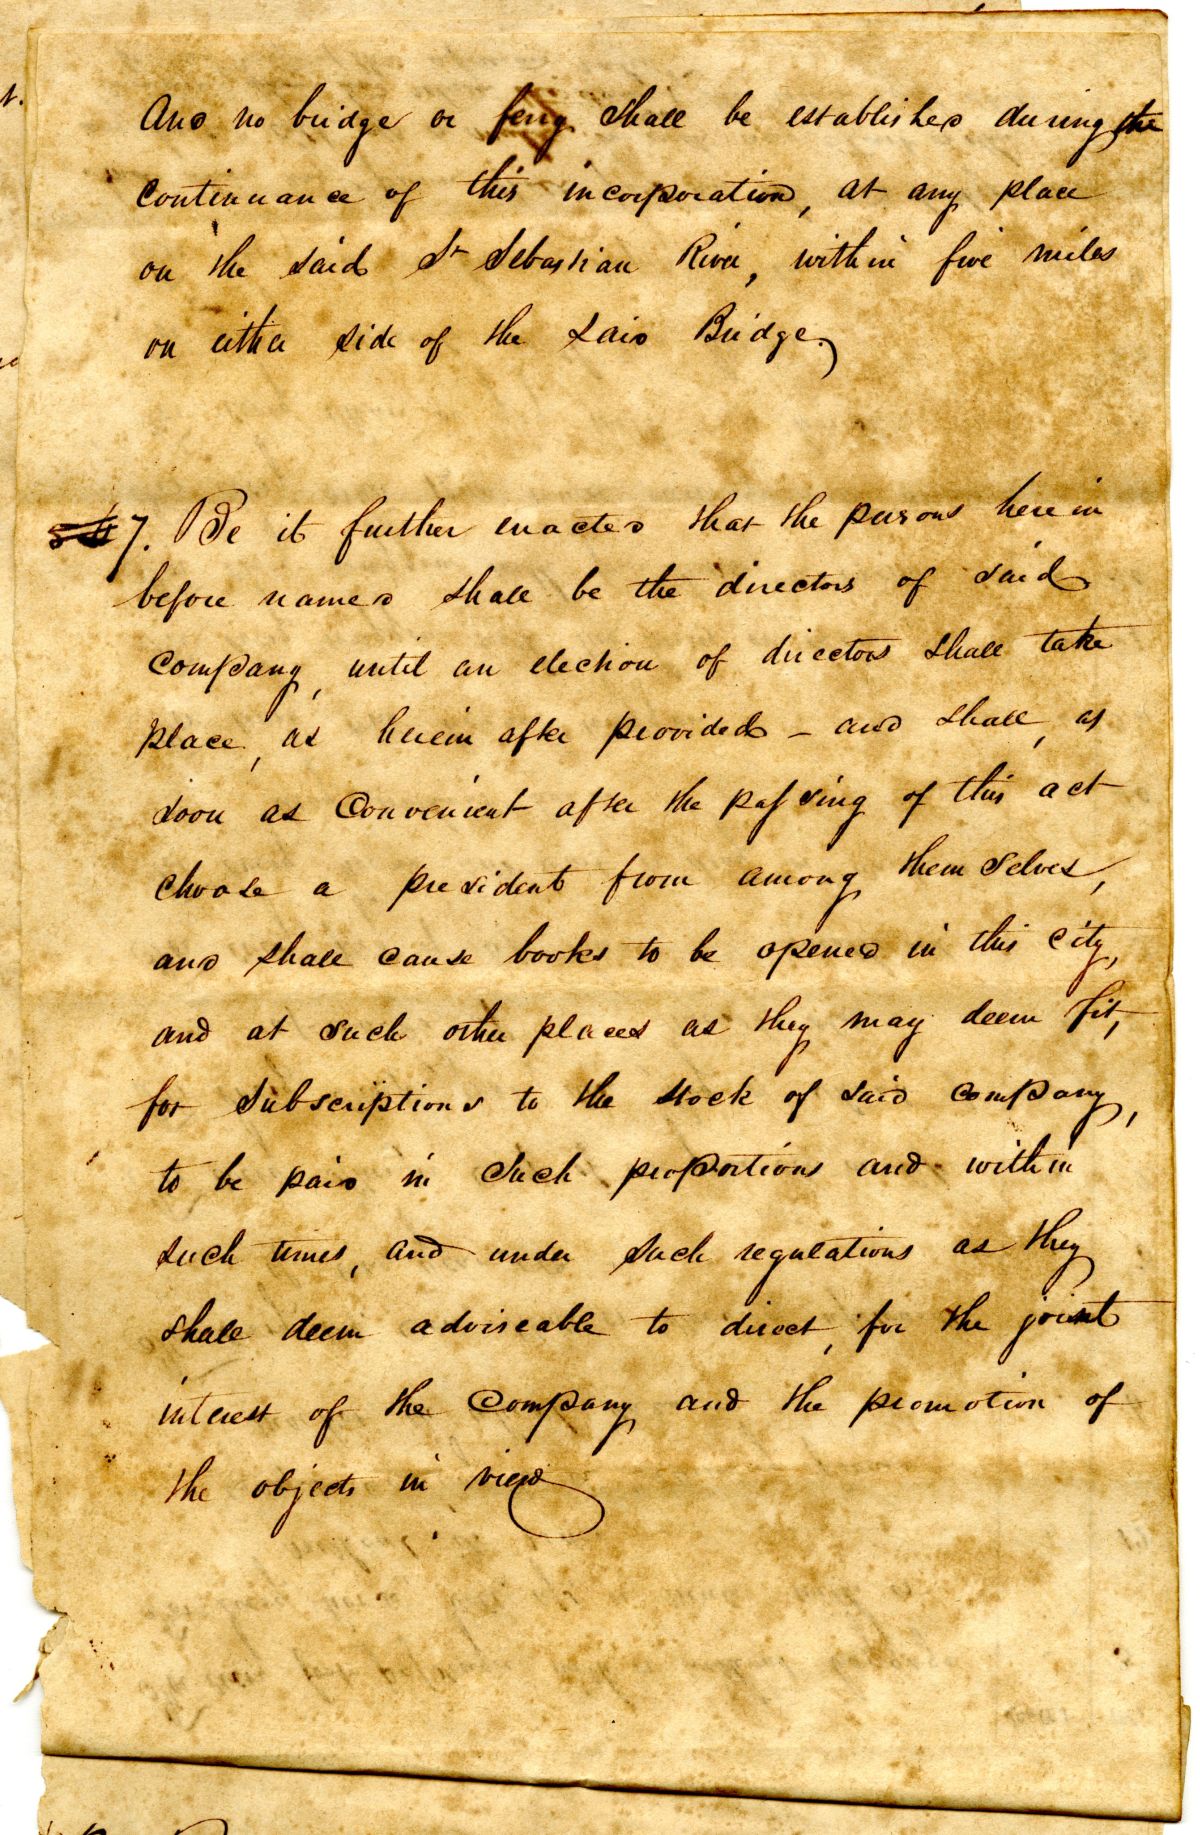 And no bridge or ferry shall be established during the
continuance of this incorporation, at any place
on the said St Sebastian River, within five miles
on either side of the said Bridge.
7. Be it further enacted that the persons here in
before named shall be the directors of said
Company, until an election of directors shall take
place, as herein after provided - and shall, as
soon as Convenient after the passing of this act
choose a president from among them selves,
and shall cause books to be opened in this city,
and at such other places as they may deem fit,
for subscriptions to the stock of said company,
to be paid in such proportions and within
such times, and under such regulations as they
shall deem adviseable to direct, for the joint
interest of the Company and the promotion of
the objects in view